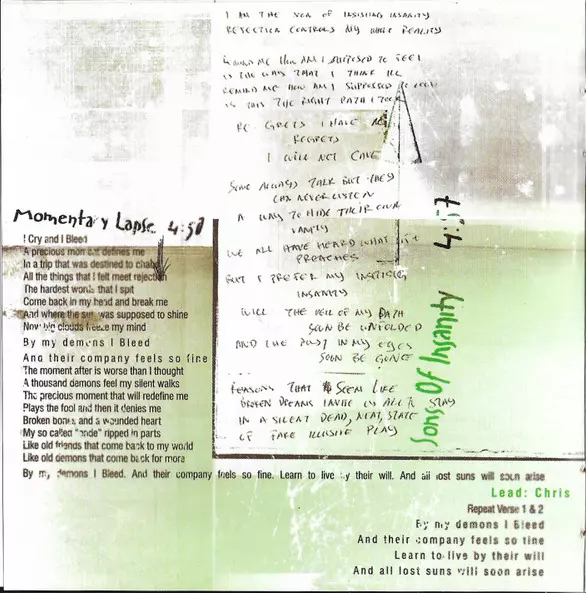 I AM THE SON OF INSISTING INSANITY
REJECTION CONTROLS MY WHOLE REALITY
REMIND ME HOW AM I SUPPOSED TO FEEL
IS THE WAY THAT I THINK ILL
REMIND ME HOW AM I SUPPOSED TO FEEL
IS THIS THE RIGHT PATH I TOOK
REGRETS I HAVE NO
REGRETS
I WILL NOT CAVE
SOME ALWAYS TALK BUT THEY
CAN NEVER LISTEN
A WAY TO HIDE THEIR OWN
VANITY
WE ALL HAVE HEARD WHAT
PREACHES
BUT I PREFER MY INSISTING
INSANITY
WILL THE VEIL OF MY PATH
SOON BE UNFOLDED
AND THE DUST IN MY EYES
SOON BE GONE
REASONS THAT SEEM LIKE
BROKEN DREAMS INVITE US ALL TO STAY
IN A SILENT DEAD, NEAT, STATE
OF FAKE ILLUSIVE PLAY
Sons Of Insanity 4:57
Momentary Lapse 4:58
I Cry and I Bleed
A precious moment defines me
In a trip that was destined to chaos
All the things that I felt meet rejection
The hardest words that I spit
Come back in my head and break me
And where the sun was supposed to shine
Now the clouds freeze my mind
By my demons I Bleed
And their company feels so fine
The moment after is worse than I thought
A thousand demons feel my silent walks
The precious moment that will redefine me
Plays the fool and then it denies me
Broken bones and a wounded heart
My so called "pride" ripped in parts
Like old friends that come back to my world
Like old demons that come back for more
By my demons I Bleed. And their company feels so fine. Learn to live by their will. And all lost suns will soon arise
Lead: Chris
Repeat Verse 1 & 2
By my demons I Bleed
And their company feels so fine
Learn to live by their will
And all lost suns will soon arise